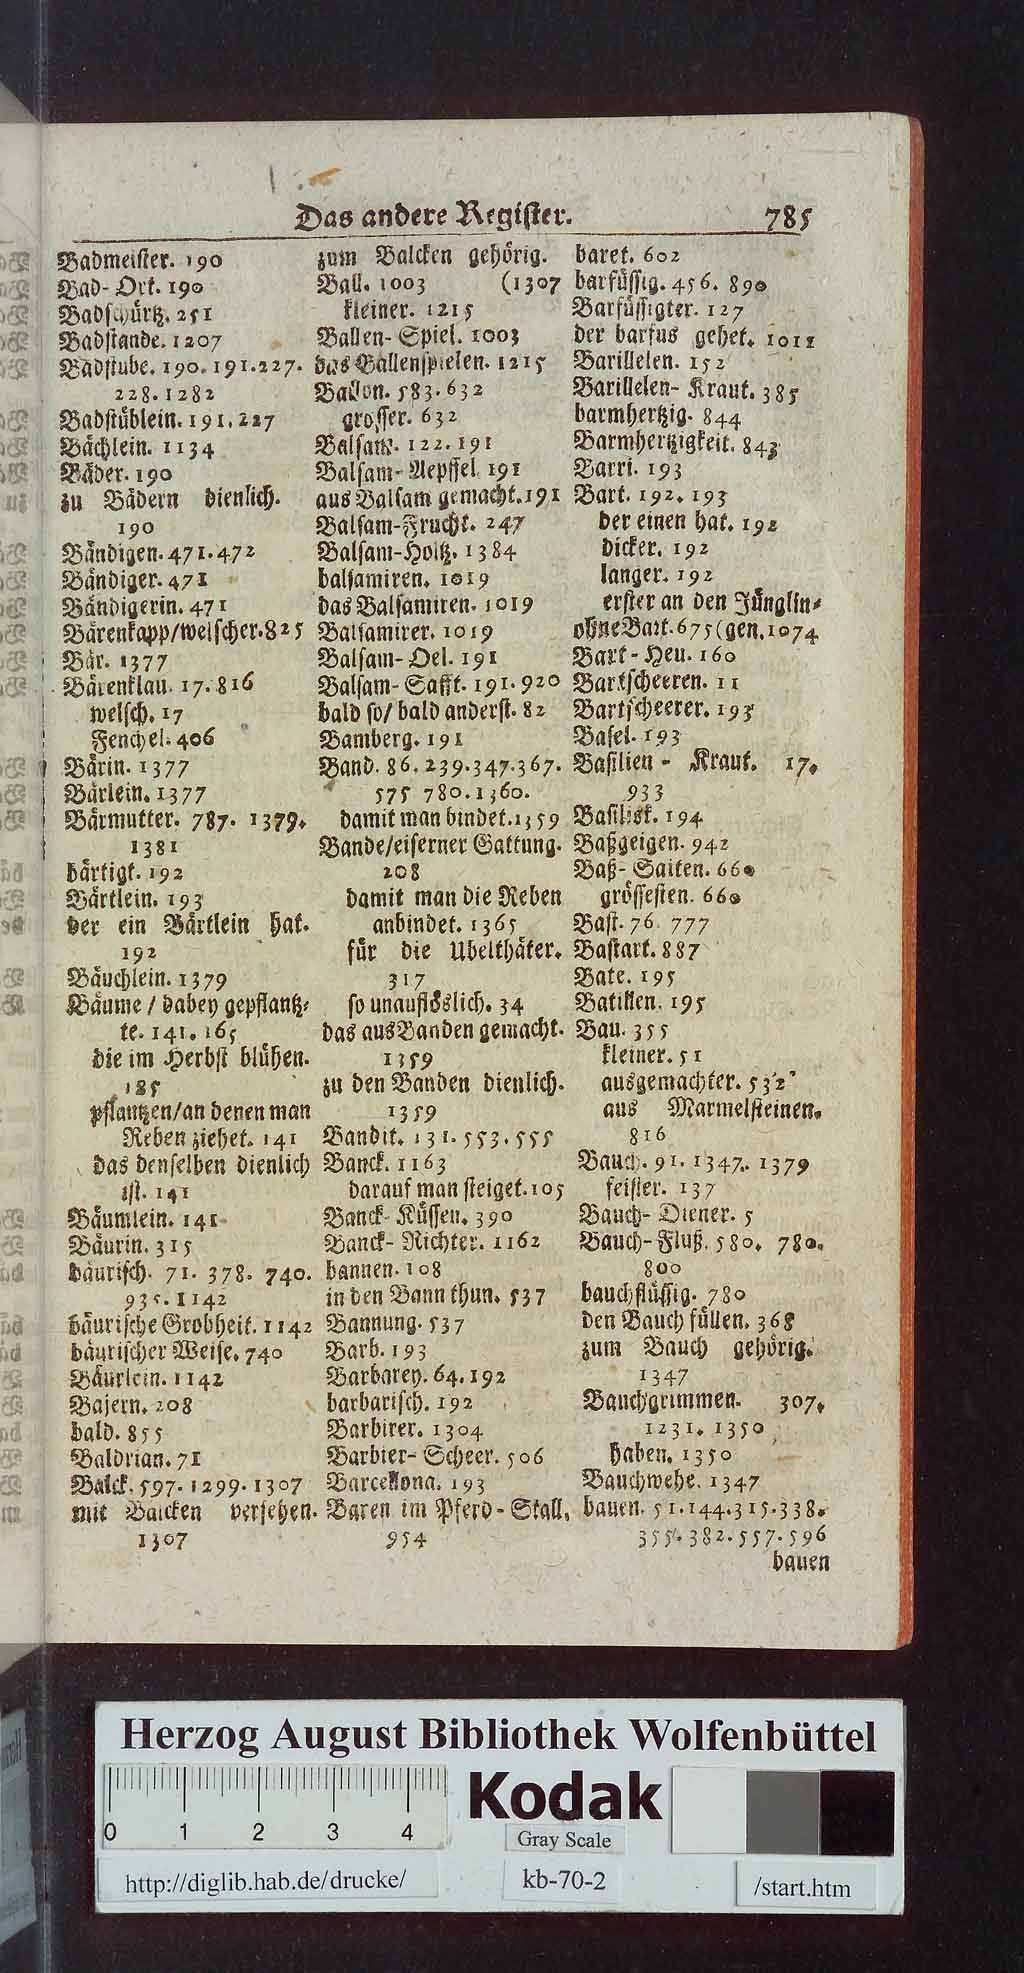 Das andere Register. 785
Badmeister. 190
Bad-Ort. 190
Badschürtz. 251
Badstande. 1207
Badstube. 190. 191. 227.
228. 1282
Badstüblein. 191. 227
Bächlein. 1134
Bäder. 190
zu Bädern dienlich.
190
Bändigen. 471. 472
Bändiger. 471
Bändigerin. 471
Bärenkapp/welscher. 825
Bär. 1377
Bärenklau. 17. 816
welsch. 17
Fenchel. 406
Bärin. 1377
Bärlein. 1377
Bärmutter. 787. 1379.
1381
bärtigt. 192
Bärtlein. 193
der ein Bärtlein hat.
192
Bäuchlein. 1379
Bäume / dabey gepflantz-
te. 141. 165
die im Herbst blühen.
185
pflantzen/an denen man
Reben ziehet. 141
das denselben dienlich
ist. 141
Bäumlein. 141
Bäurin. 315
bäurisch. 71. 378. 740.
935. 1142
bäurische Grobheit. 1142
bäurischer Weise. 740
Bäurlein. 1142
Bajern. 208
bald. 855
Baldrian. 71
Balck. 597. 1299. 1307
mit Balcken versehen.
1307
zum Balcken gehörig.
Ball. 1003 (1307
kleiner. 1215
Ballen-Spiel. 1003
das Ballenspielen. 1215
Ballon. 583. 632
grosser. 632
Balsam. 122. 191
Balsam-Aepffel 191
aus Balsam gemacht. 191
Balsam-Frucht. 247
Balsam-Holtz. 1384
balsamiren. 1019
das Balsamiren. 1019
Balsamirer. 1019
Balsam-Oel. 191
Balsam-Safft. 191. 920
bald so/ bald anderst. 82
Bamberg. 191
Band. 86. 239. 347. 367.
575 780. 1360.
damit man bindet. 1359
Bande/eiserner Gattung.
208
damit man die Reben
anbindet. 1365
für die Ubelthäter.
317
so unauflöslich. 34
das aus Banden gemacht.
1359
zu den Banden dienlich.
1359
Bandit. 131. 553. 555
Banck. 1163
darauf man steiget. 105
Banck-Küssen. 390
Banck-Richter. 1162
bannen. 108
in den Bann thun. 537
Bannung. 537
Barb. 193
Barbarey. 64. 192
barbarisch. 192
Barbirer. 1304
Barbier-Scheer. 506
Barcellona. 193
Baren im Pferd-Stall.
954
baret. 602
barfüssig. 456. 890
Barfüssigter. 127
der barfus gehet. 1011
Barillelen. 152
Barillelen-Kraut. 385
barmhertzig. 844
Barmhertzigkeit. 843
Barri. 193
Bart. 192. 193
der einen hat. 192
dicker. 192
langer. 192
erster an den Jünglin-
ohne Bart. 675 (gen. 1074
Bart-Heu. 160
Bartscheeren. 11
Bartscheerer. 193
Basel. 193
Basilien-Kraut. 17.
933
Basilisk. 194
Baßgeigen. 942
Baß-Saiten. 660
grössesten. 660
Bast. 76. 777
Bastart. 887
Bate. 195
Batillen. 195
Bau. 355
kleiner. 51
ausgemachter. 532
aus Marmelsteinen.
816
Bauch. 91. 1347. 1379
feister. 137
Bauch-Diener. 5
Bauch-Fluß. 580. 780.
800
bauchflüssig. 780
den Bauch füllen. 368
zum Bauch gehörig.
1347
Bauchgrimmen. 307.
1231. 1350
haben. 1350
Bauchwehe. 1347
bauen. 51. 144. 315. 338.
355. 382. 557. 596
bauen
Herzog August Bibliothek Wolfenbüttel
0 1 2 3 4
Kodak
Gray Scale
http://diglib.hab.de/drucke/
kb-70-2
/start.htm